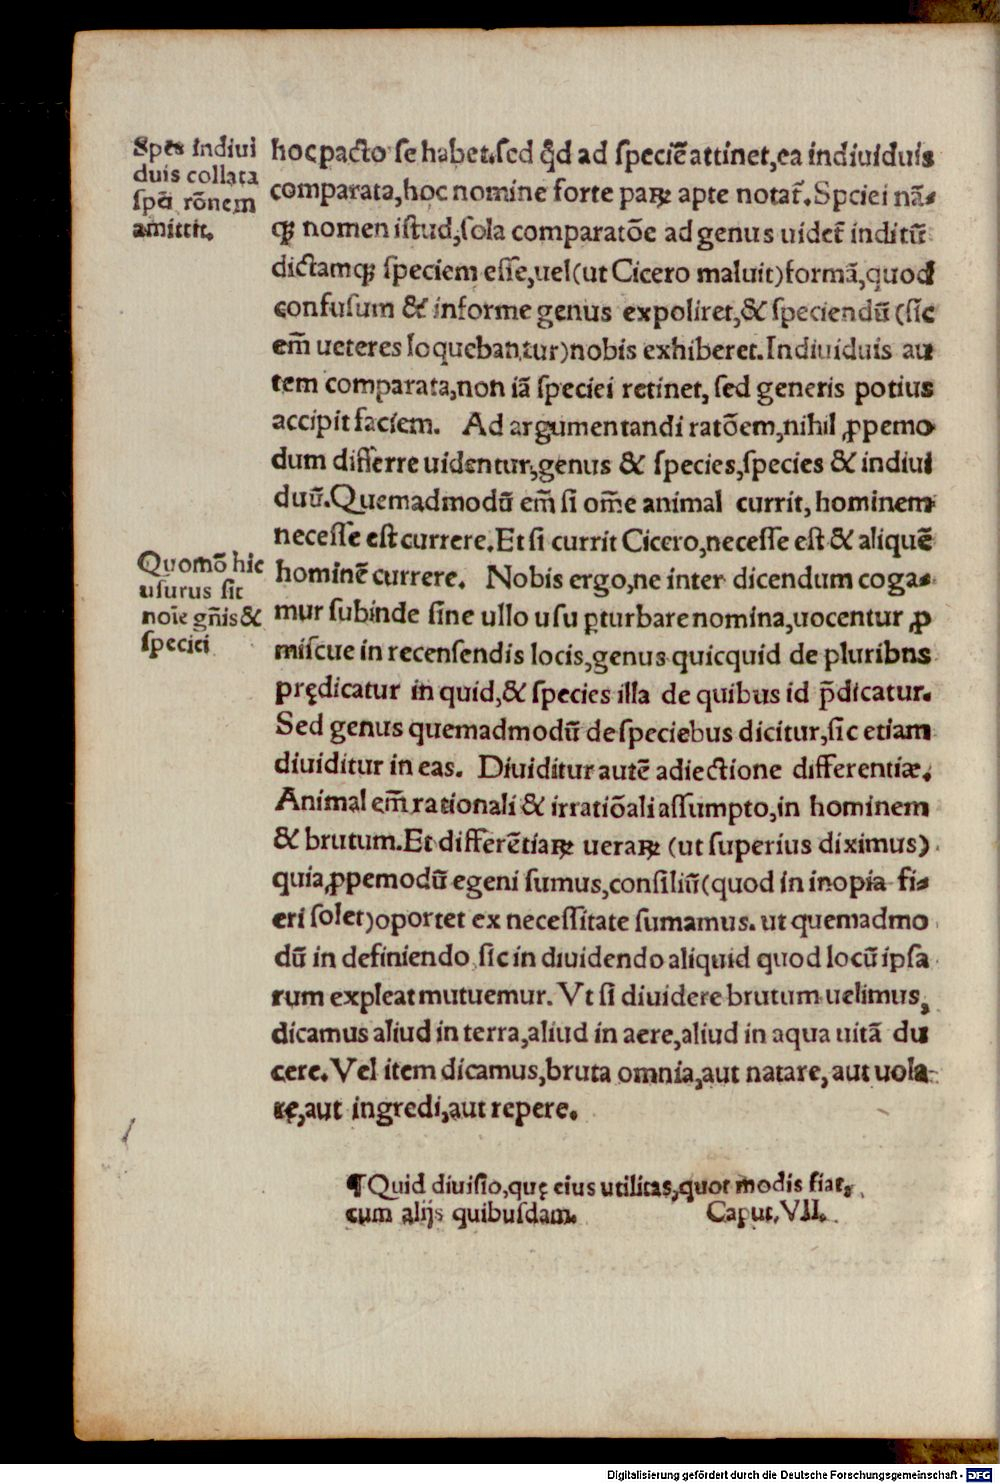 Spēs indiui
duis collata
spēi rōnem
amittit.
hoc pacto se habet. sed qđ ad speciē attinet, ea indiuiduis
comparata, hoc nomine forte paꝝ apte notat̃. Spciei nā-
qꝫ nomen istud, sola comparatōe ad genus uidet̃ inditū
dictamqꝫ speciem esse, uel (ut Cicero maluit) formā, quod
confusum & informe genus expoliret, & speciendū (sic
em̃ ueteres loquebantur) nobis exhiberet. Indiuiduis au
tem comparata, non iā speciei retinet, sed generis potius
accipit faciem. Ad argumentandi ratōem, nihil ꝓpemo
dum differre uidentur, genus & species, species & indiui
duū. Quemadmodū em̃ si om̃e animal currit, hominem
necesse est currere. Et si currit Cicero, necesse est & aliquē
hominē currere. Nobis ergo, ne inter dicendum coga-
mur subinde sine ullo usu ꝑturbare nomina, uocentur ꝓ
miscue in recensendis locis, genus quicquid de pluribns
Quomō hic
usurus sit
noīe gñis &
speciei
prędicatur in quid, & species illa de quibus id p̄dicatur.
Sed genus quemadmodū de speciebus dicitur, sic etiam
diuiditur in eas. Diuiditur autē adiectione differentiæ.
Animal em̃ rationali & irratiōali assumpto, in hominem
& brutum. Et differētiaꝝ ueraꝝ (ut superius diximus)
quia ꝓpemodū egeni sumus, consiliū (quod in inopia fi-
eri solet) oportet ex necessitate sumamus. ut quemadmo
dū in definiendo, sic in diuidendo aliquid quod locū ipsa
rum expleat mutuemur. Vt si diuidere brutum uelimus,
dicamus aliud in terra, aliud in aere, aliud in aqua uitā du
cere. Vel item dicamus, bruta omnia, aut natare, aut uola-
re, aut ingredi, aut repere.
¶ Quid diuisio, quę eius utilitas, quot modis fiat,
cum alijs quibusdam. Caput. VII.
Digitalisierung gefördert durch die Deutsche Forschungsgemeinschaft - DFG